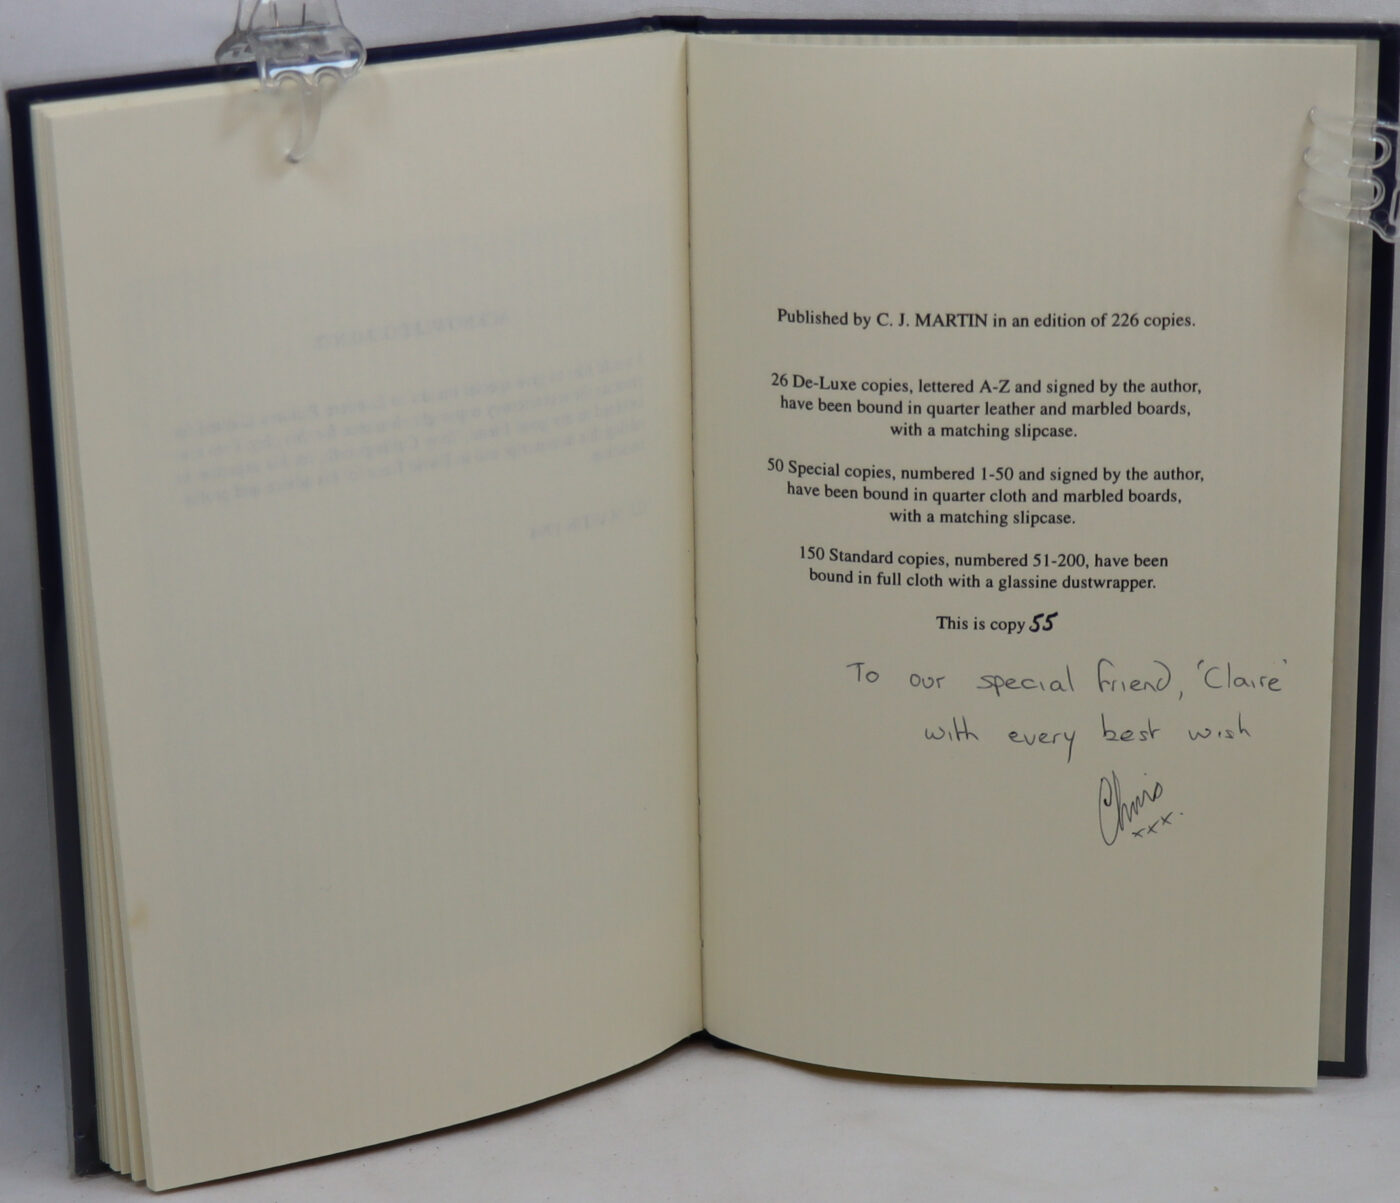 Published by C. J. MARTIN in an edition of 226 copies.
26 De-Luxe copies, lettered A-Z and signed by the author,
have been bound in quarter leather and marbled boards,
with a matching slipcase.
50 Special copies, numbered 1-50 and signed by the author,
have been bound in quarter cloth and marbled boards,
with a matching slipcase.
150 Standard copies, numbered 51-200, have been
bound in full cloth with a glassine dustwrapper.
This is copy 55
To our special friend, 'Claire'
with every best wish
Chris
xxx.